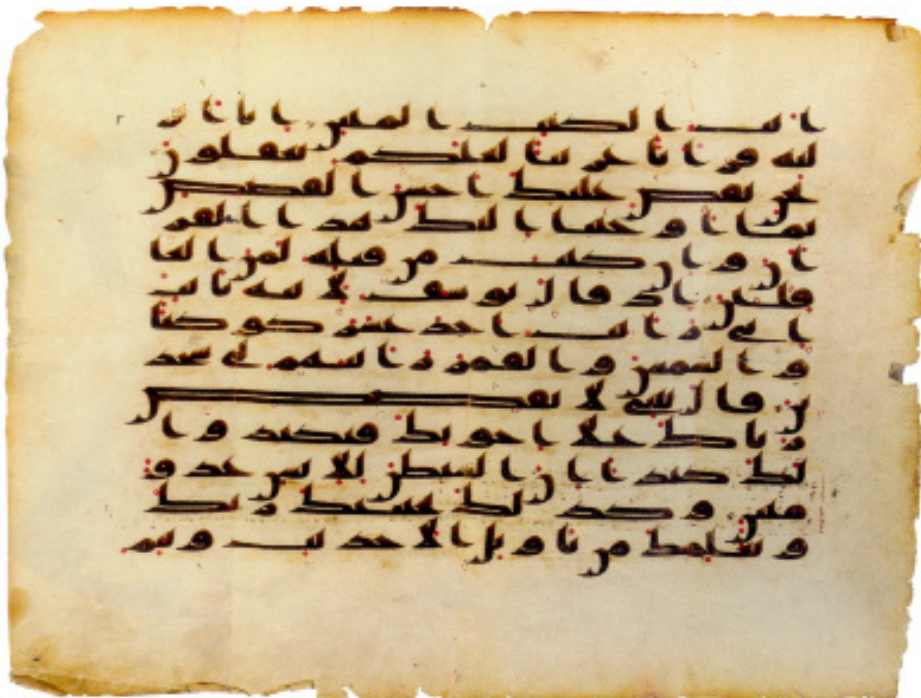 ايت الكتب المبين انا انز
لنه قرانا عربيا لعلكم تعقلون
نحن نقص عليك احسن القصص
بما اوحينا اليك هذا القر
ان وان كنت من قبله لمن الغا
فلين اذ قال يوسف لابيه يابت
اني رايت احد عشر كوكبا
والشمس والقمر رايتهم لي سجد
ين قال يبني لا تقصص
رياك علا اخوتك فيكيدوا
لك كيدا ان الشيطن للانسن عدو
مبين وكذلك يجتبيك ربك
و يعلمك من تاويل الاحديث ويتم